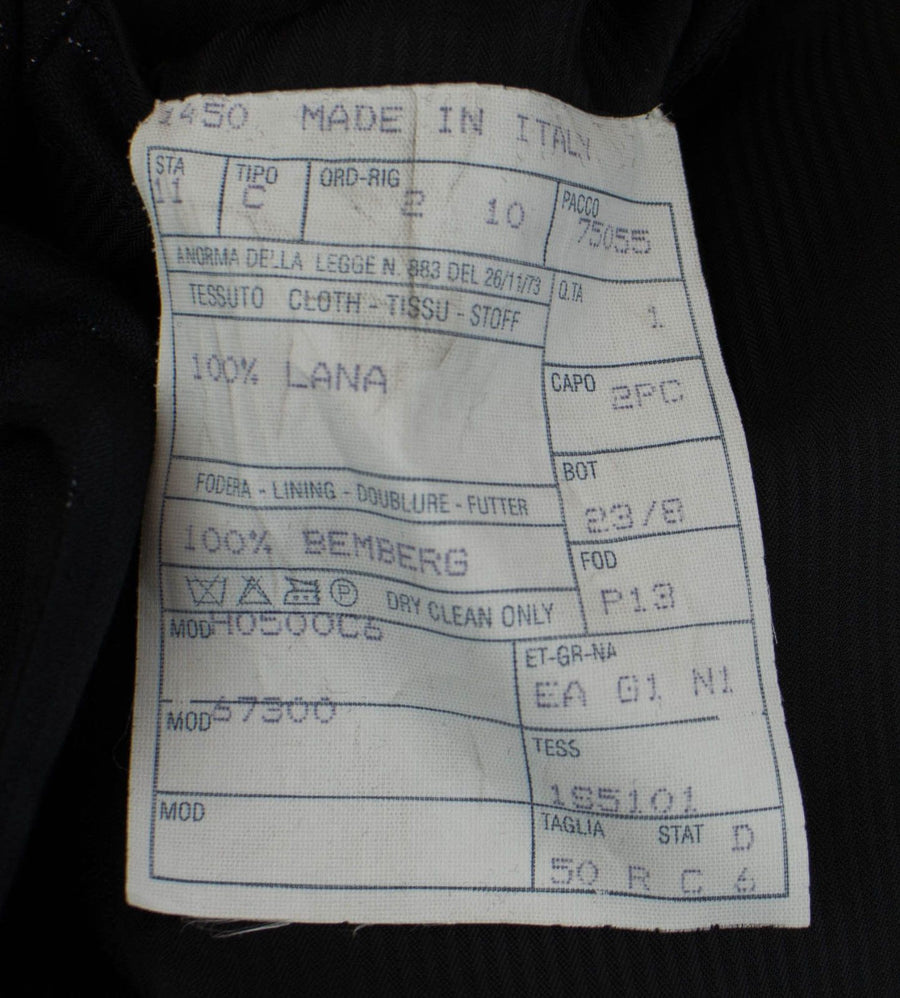 1450 MADE IN ITALY
STA TIPO ORD-RIG PACCO
11 C 2 10 75055
A NORMA DELLA LEGGE N. 883 DEL 26/11/73 Q.TA
TESSUTO CLOTH - TISSU - STOFF 1
100% LANA CAPO 2PC
FODERA - LINING - DOUBLURE - FUTTER BOT
23/8
100% BEMBERG FOD
P DRY CLEAN ONLY P13
MOD H0500C6 ET-GR-NA
EA G1 N1
MOD 67300 TESS
1S5101
MOD TAGLIA STAT D
50 R C 6